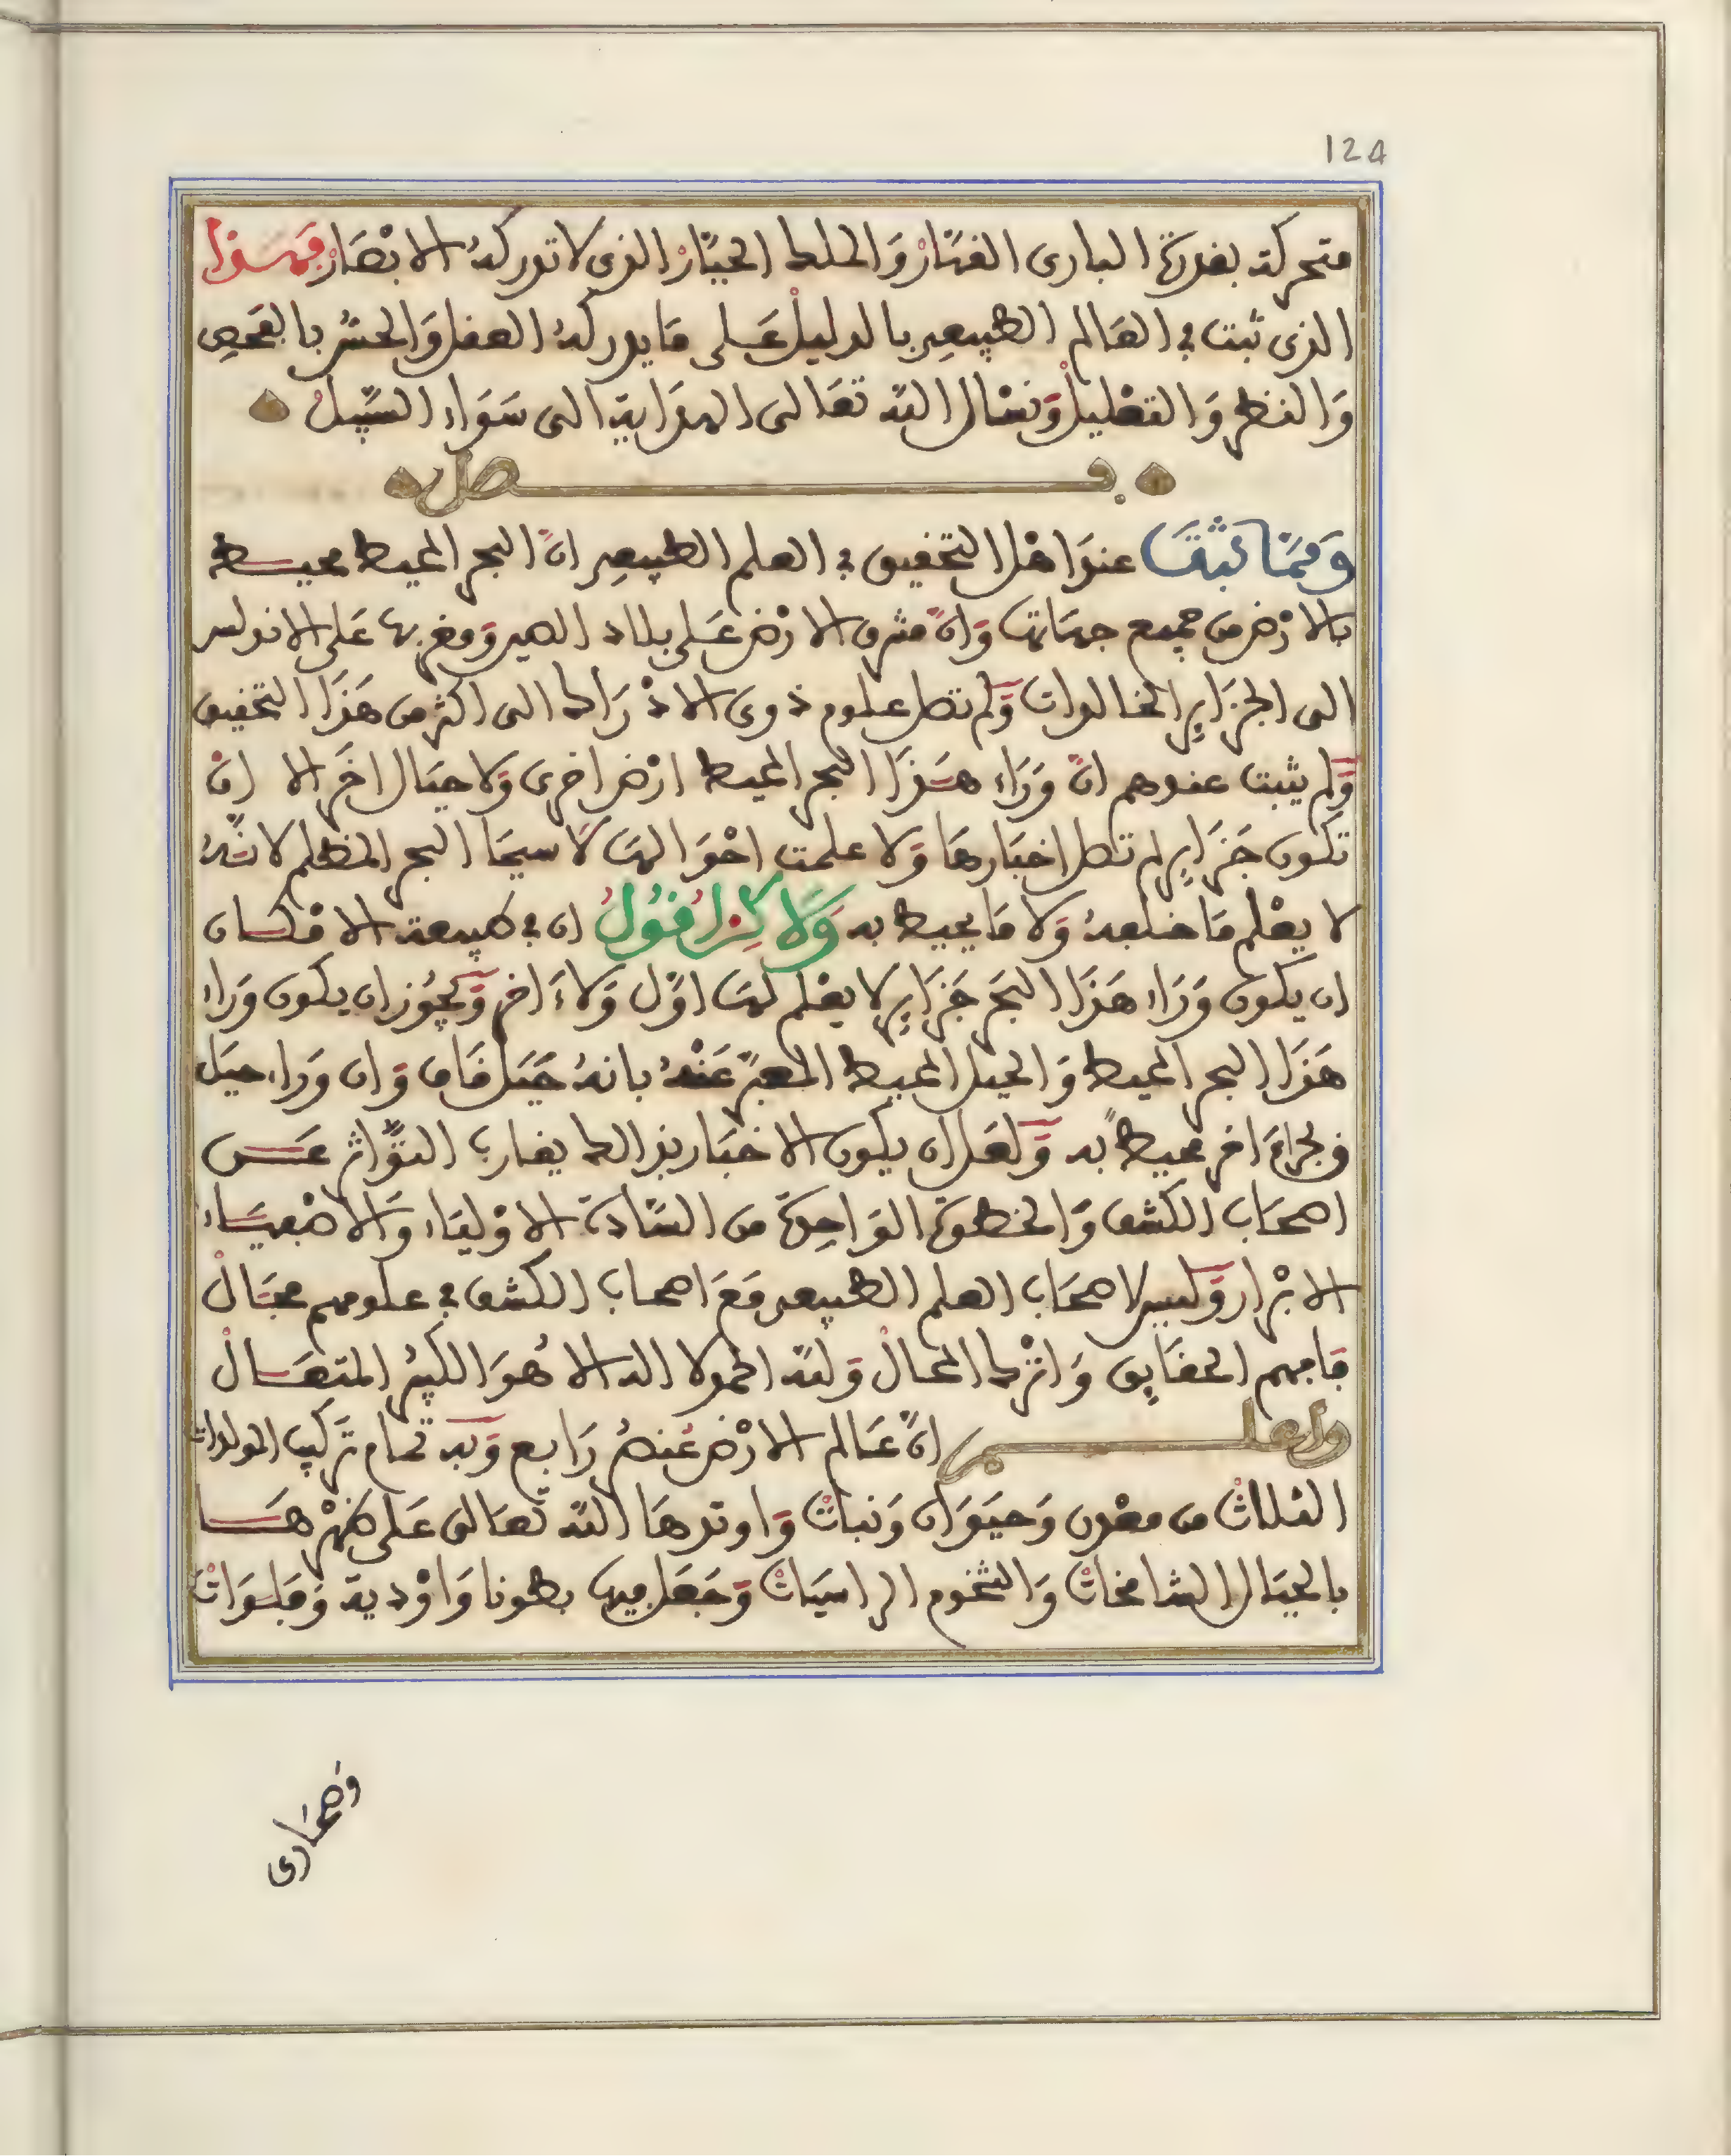 124
متحركة بقدرة البارى القهار والملك الجبار الذى لا تدركه الابصار فهذا
الذى ثبت فى العالم الطبيعى بالدليل على ما يدركه العقل والحس بالفحص
والنظر والتعليل ونسال الله تعالى الهداية الى سواء السبيل
فصل
ومما ثبت عند اهل التحقيق فى العلم الطبيعى ان البحر المحيط محيط
بالارض من جميع جهاتها وان مشرق الارض على بلاد الصين ومغربها على الاندلس
الى الجزاير الخالدات ولم تصل علوم ذوى الادراك الى اكثر من هذا التحقيق
ولم يثبت عندهم ان وراء هذا البحر المحيط ارض اخرى ولا جبال اخر الا ان
تكون جزاير لم تصل اخبارها ولا علمت احوالها لا سيما البحر المظلم لانه
لا يعلم ما خلفه ولا ما يحيط به ولاكن اقول ان فى طبيعة الامكان
ان يكون وراء هذا البحر جزاير لا يعلم لها اول ولا اخر ويجوز ان يكون وراء
هذا البحر المحيط والجبل المحيط المعبر عنه بانه جبل قاف وان وراء جبل
ق بحرا اخر محيط به ولعل ان يكون الاخبار بذالك يقارب التواتر عن
اصحاب الكشف والخطوة الواحدة من السادة الاولياء والاصفياء
الابرار وليس لاصحاب العلم الطبيعى مع اصحاب الكشف فى علومهم مجال
فافهم الحقايق واترك المحال ولله الحمد لا اله الا هو الكبير المتعال
واعلم ان عالم الارض عنصر رابع وبه تمام تركيب المولدات
الثلاث من معدن وحيوان ونبات واوتدها الله تعالى على ظهرها
بالجبال الشامخات والتخوم الراسيات وجعل فيها بطونا واودية وفلوات
وصحارى